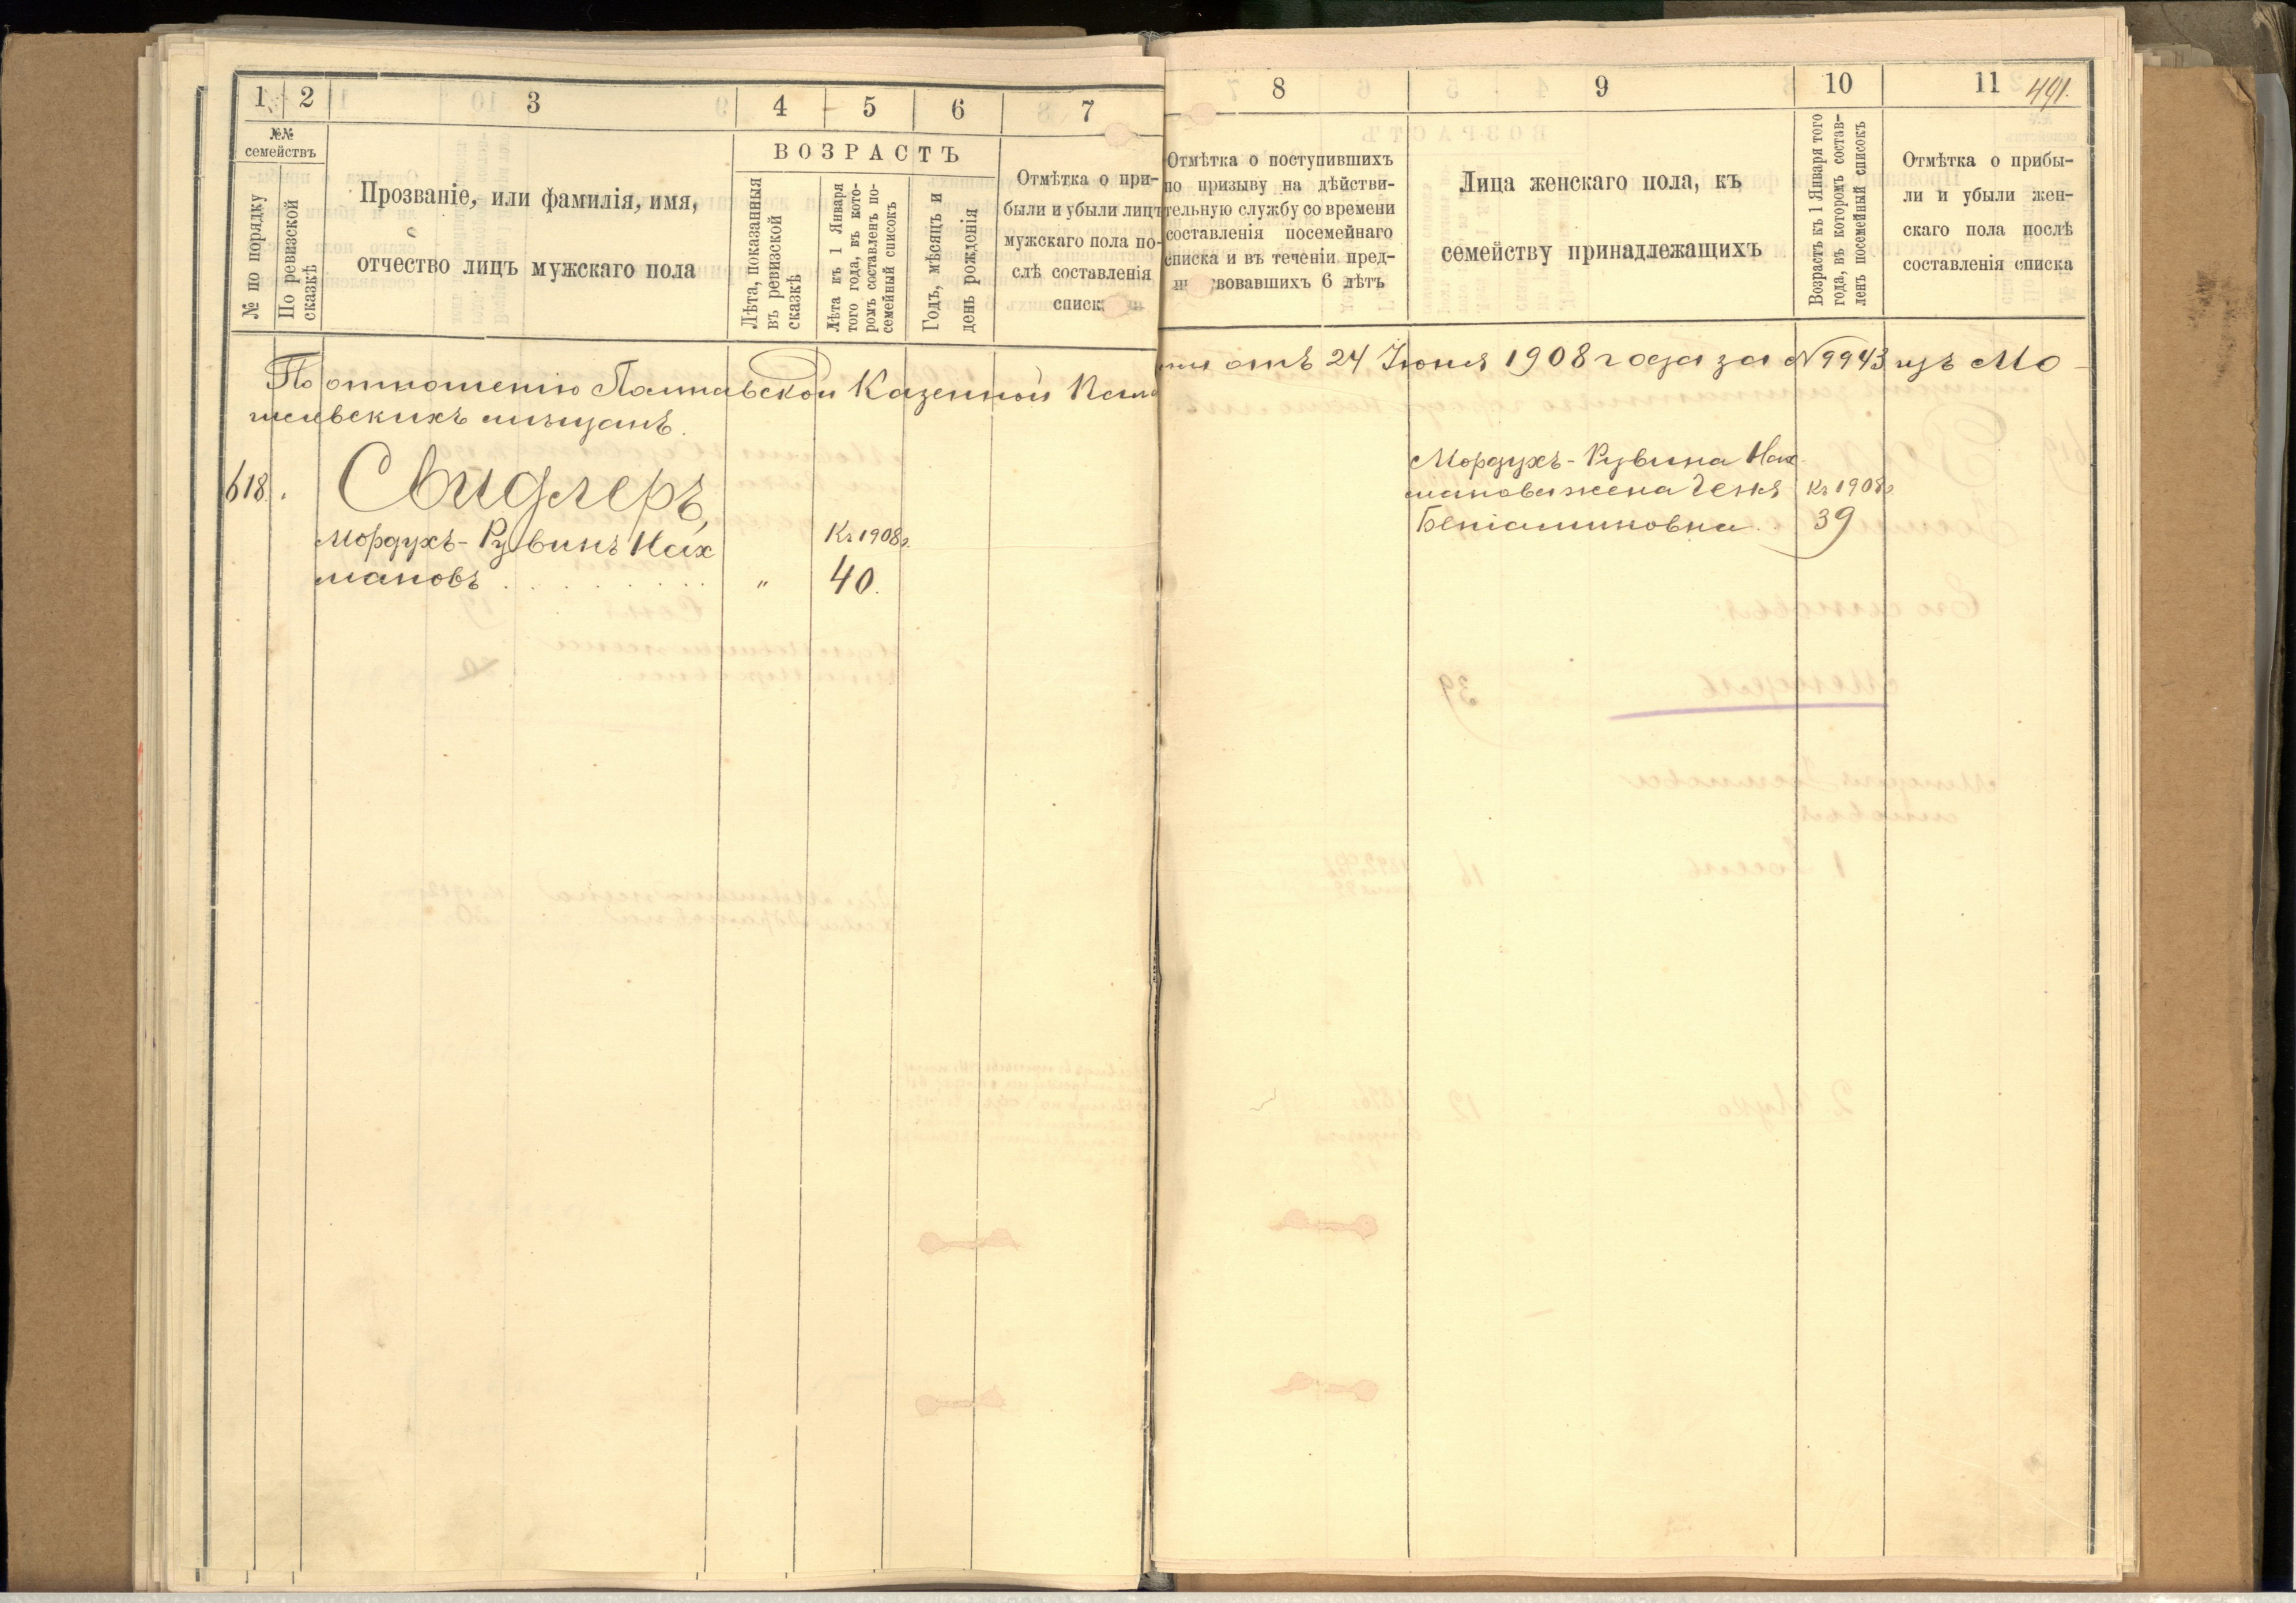 1 2 3 4 5 6 7
№№ семействъ
№ по порядку
По ревизской сказкѣ
Прозваніе, или фамилія, имя,
отчество лицъ мужскаго пола
ВОЗРАСТЪ
Лѣта, показанныя
въ ревизской
сказкѣ
Лѣта къ 1 Января
того года, въ кото-
ромъ составленъ по-
семейный списокъ
Годъ, мѣсяцъ и
день рожденія
Отмѣтка о при-
были и убыли лицъ
мужскаго пола по-
слѣ составленія
списка
8 9 10 11
491.
Отмѣтка о поступившихъ
по призыву на дѣйстви-
тельную службу со времени
составленія посемейнаго
списка и въ теченіи пред-
вовавшихъ 6 лѣтъ
Лица женскаго пола, къ
семейству принадлежащихъ
Возрастъ къ 1 Января того
года, въ которомъ состав-
ленъ посемейный списокъ
Отмѣтка о прибы-
ли и убыли жен-
скаго пола послѣ
составленія списка
По отношенію Полтавской Казенной Пала
ты отъ 24 Іюня 1908 года за №9943 изъ Мо-
гилевскихъ мѣщанъ.
618.
Свидлеръ,
Мордухъ-Рувинъ Нах
мановъ " 40.
Къ 1908 г.
Мордухъ-Рувина Нах-
манова жена Геня
Беніаминовна. 39
Къ 1908 г.